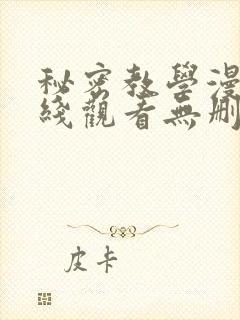 秘密教學漫
綫觀看無刪
皮卡